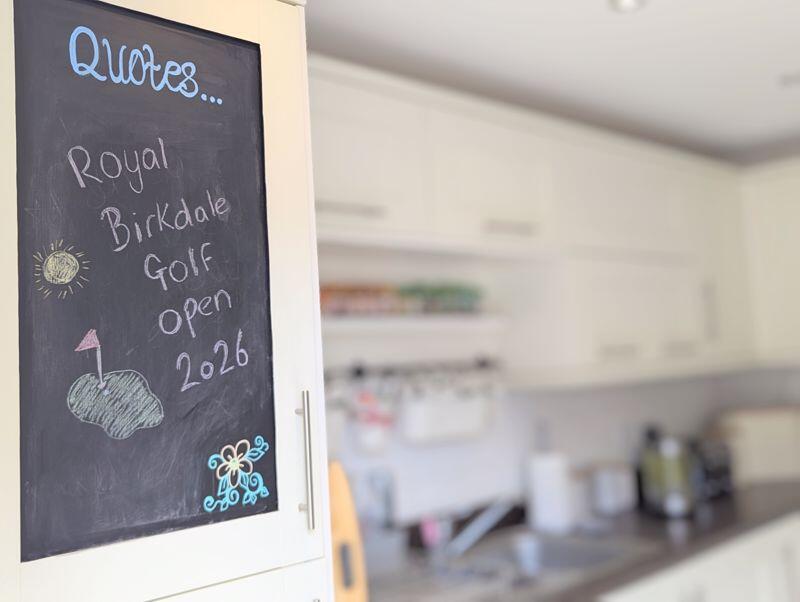 Quotes...
Royal
Birkdale
Golf
open
2026